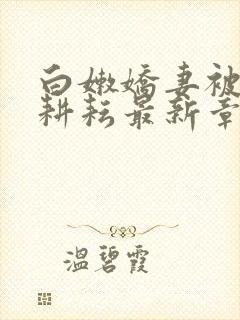 白嫩嬌妻被
耕耘最新章
溫碧霞